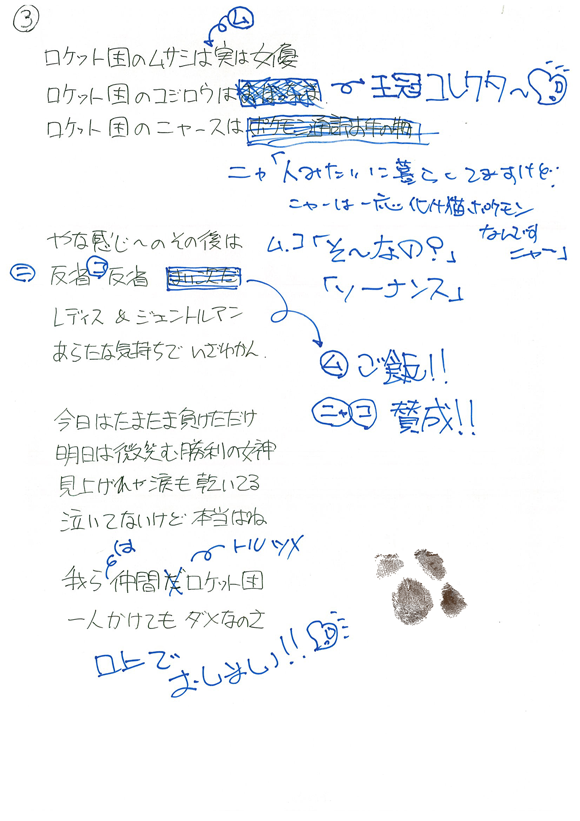 ③
ム
ロケット団のムサシは実は女優
ロケット団のコジロウは 王冠コレクタ〜
ロケット団のニャースは
ニャ「人みたいに暮らしてますけど…
ニャーは一応化け猫ポケモン
なんです
ニャー」
やな感じへのその後は
ム.コ「そ〜なの?」
ニ 反省 コ 反省
「ソーナンス」
Lディス & ジェントルアン
あらたな気持ちで いざゆかん.
ム ご飯!!
ニャ コ 賛成!!
今日はたまたま負けただけ
明日は微笑む勝利の女神
見上げれゃ涙も乾いてる
泣いてないけど 本当はね
は トルツメ
我ら 仲間だ ロケット団
一人かけても ダメなのさ
口上で
おしまい!!